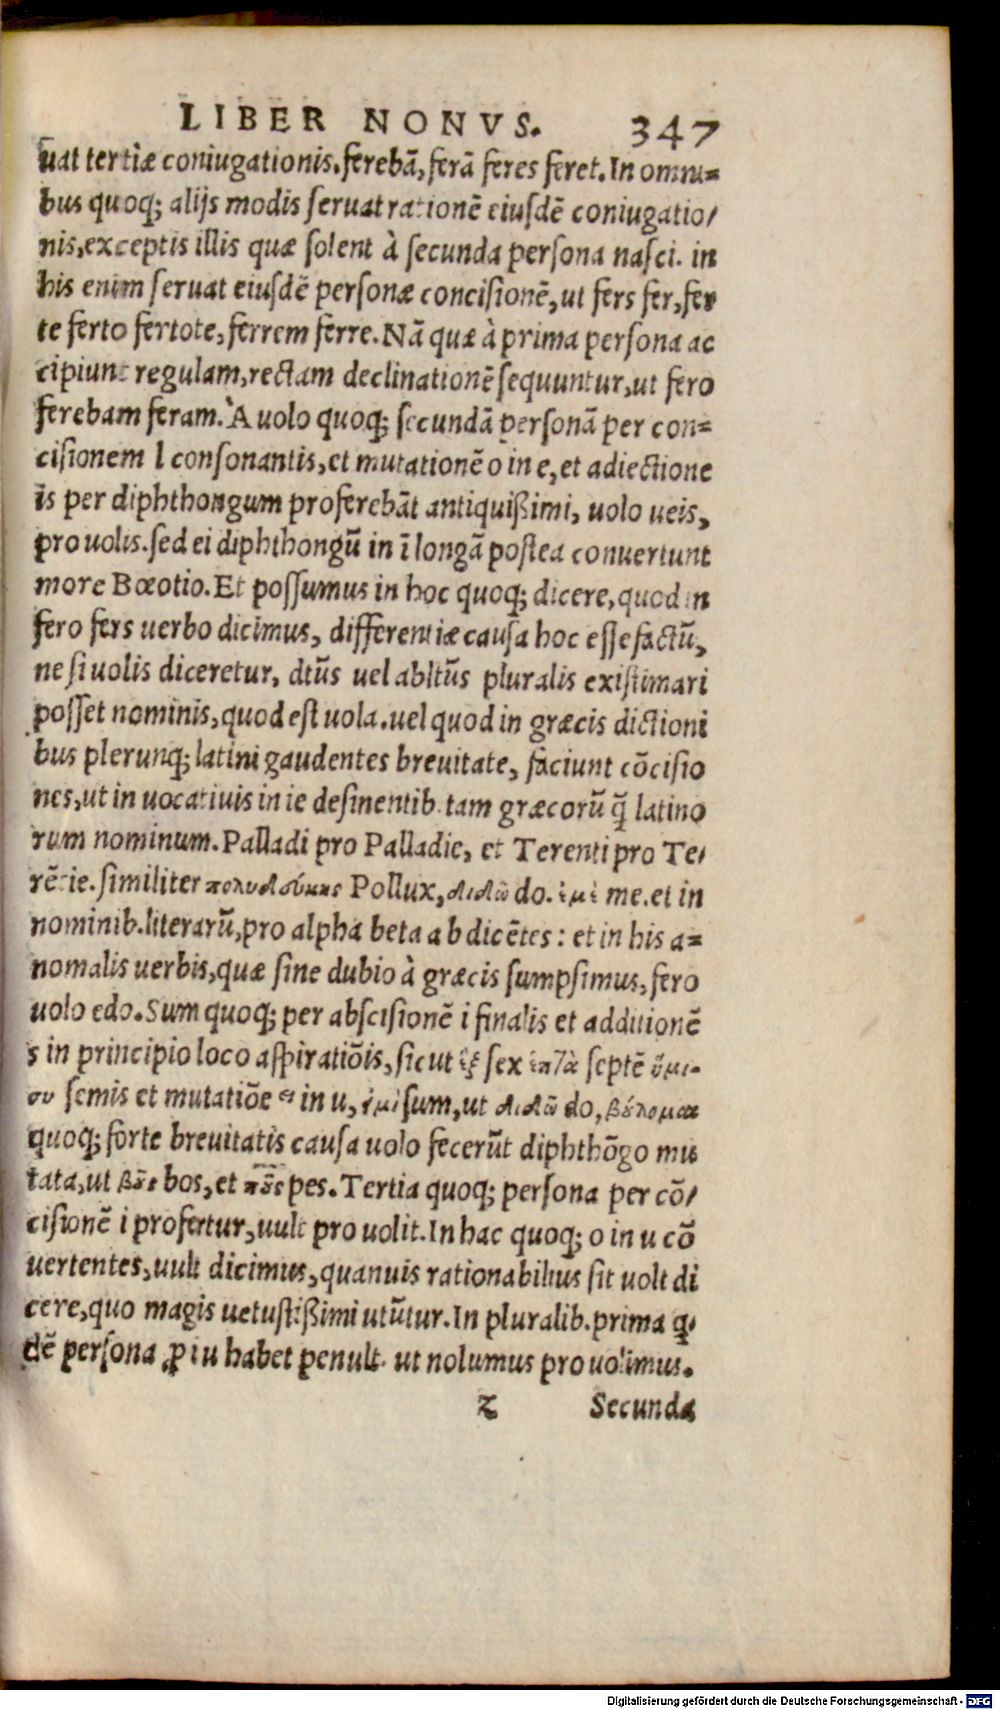 LIBER NONVS. 347
uat tertiæ coniugationis.ferebā,ferā feres feret.In omni=
bus quoq; alijs modis seruat rationē eiusdē coniugatio/
nis,exceptis illis quæ solent à secunda persona nasci. in
his enim seruat eiusdē personæ concisionē,ut fers fer,fer
te ferto fertote,ferrem ferre.Nā quæ à prima persona ac
cipiunt regulam,rectam declinationē sequuntur,ut fero
ferebam feram.À uolo quoq; secundā personā per con=
cisionem l consonantis,et mutationē o in e,et adiectione
is per diphthongum proferebāt antiquißimi, uolo ueis,
pro uolis.sed ei diphthongū in ī longā postea conuertunt
more Bœotio.Et possumus in hoc quoq; dicere,quod in
fero fers uerbo dicimus, differentiæ causa hoc esse factū,
ne si uolis diceretur, dtūs uel abltūs pluralis existimari
posset nominis,quod est uola.uel quod in græcis dictioni
bus plerunq; latini gaudentes breuitate, faciunt cōcisio
nes,ut in uocatiuis in ie desinentib.tam græcorū q̄ latino
rum nominum.Palladi pro Palladie, et Terenti pro Te/
rētie.similiter πολυδεύκης Pollux,διδῶ do. ἐμὲ me.et in
nominib.literarū,pro alpha beta a b dicētes : et in his a=
nomalis uerbis,quæ sine dubio à græcis sumpsimus,fero
uolo edo.Sum quoq; per abscisionē i finalis et additionē
s in principio loco aspiratiōis,sicut ἓξ sex ἑπτὰ septē ἥμι-
συ semis et mutatiōe ει in u, εἰμὶ sum,ut διδῶ do, βόλομαι
quoq; forte breuitatis causa uolo fecerūt diphthōgo mu
tata,ut βοῦς bos,et ποῦς pes.Tertia quoq; persona per cō/
cisionē i profertur,uult pro uolit.In hac quoq; o in u cō
uertentes,uult dicimus,quanuis rationabilius sit uolt di
cere,quo magis uetustißimi utūtur.In pluralib.prima q/
dē persona ꝓ i u habet penult. ut nolumus pro uolimus.
z Secunda
Digitalisierung gefördert durch die Deutsche Forschungsgemeinschaft - DFG